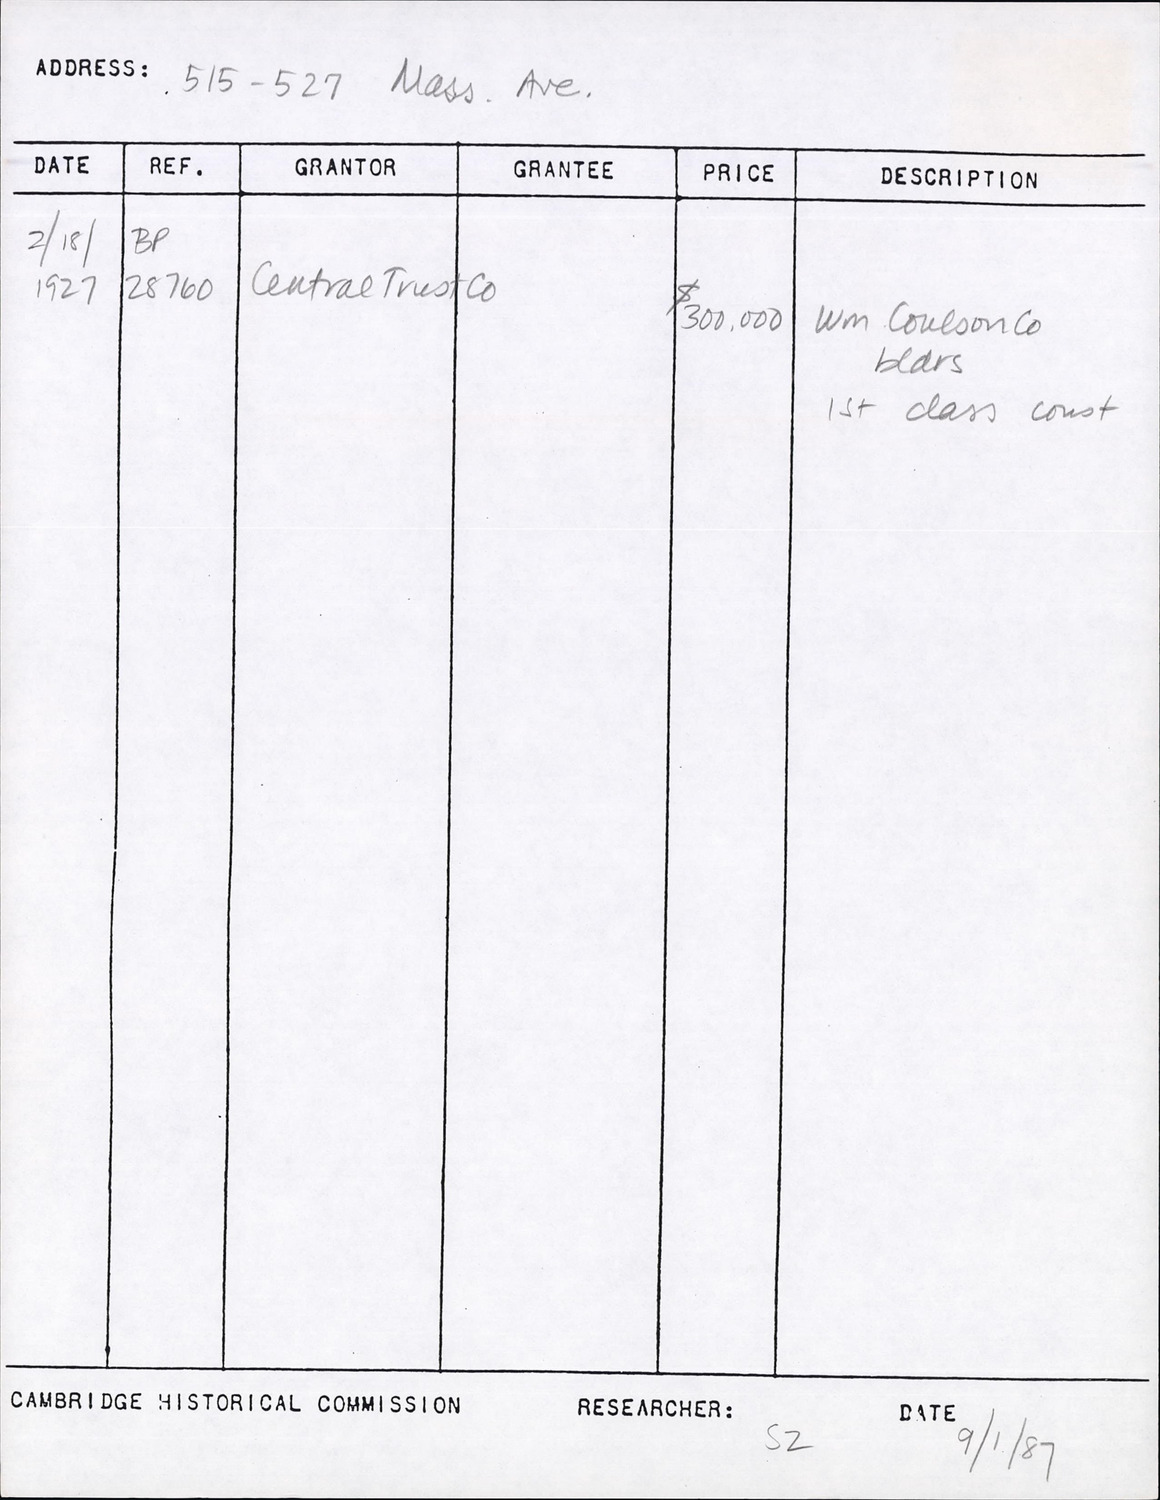 ADDRESS: 515-527 Mass. Ave.
DATE REF. GRANTOR GRANTEE PRICE DESCRIPTION
2/18/ BP
1927 28760 Central Trust Co
$300,000 Wm Coulson Co
bldrs
1st class const
CAMBRIDGE HISTORICAL COMMISSION RESEARCHER: SZ DATE 9/1/87